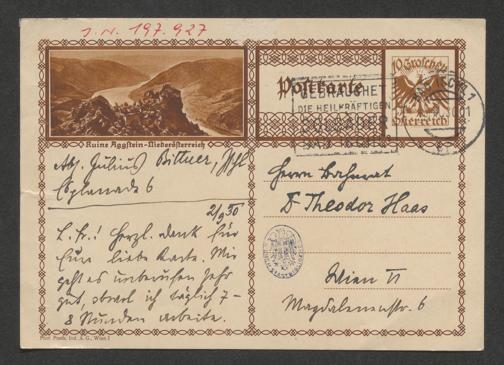 J.N. 197.927
Ruine Aggstein-Niederösterreich
Postkarte
10 Groschen
Österreich
BESUCHET
DIE HEILKRÄFTIGEN
Abs. Julius Bittner, Ischl
Esplanade 6
2/9 30
L. Fr.! Herzl. Dank für
Eure liebe Karte. Mir
geht es unberufen sehr
gut, obwol ich täglich 7-
8 Stunden arbeite.
Herrn Hofrat
Dr Theodor Haas
Wien VI
Magdalenenstr. 6
Wien I